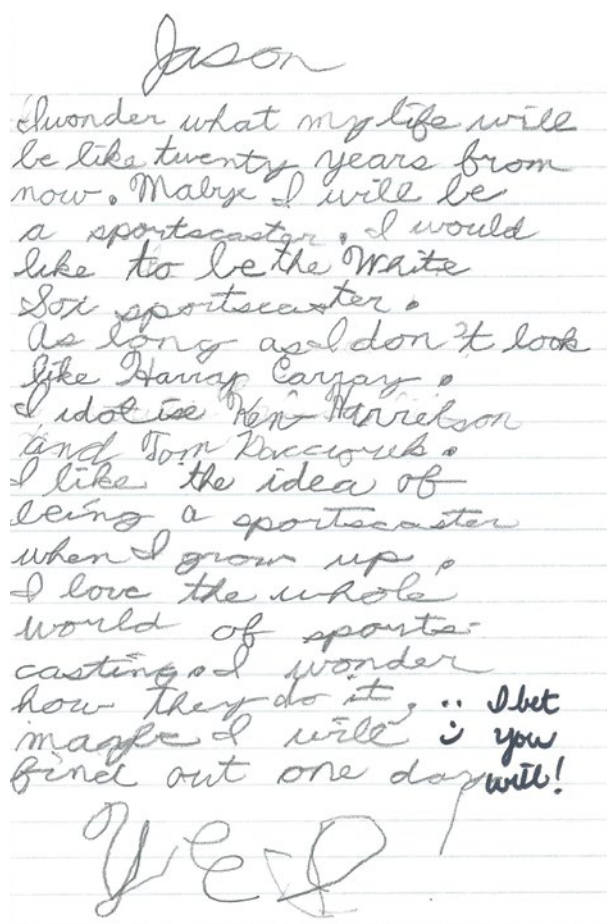 Jason
I wonder what my life will
be like twenty years from
now. Mabye I will be
a sportscaster. I would
like to be the White
Sox sportscaster.
As long as I don't look
like Harray Carray.
I idolise Ken Harrelson
and Tom
I like the idea of
being a sportscaster
when I grow up.
I love the whole
world of sports-
casting. I wonder
how they do it,
maybe I will
find out one day
I bet
you
will!